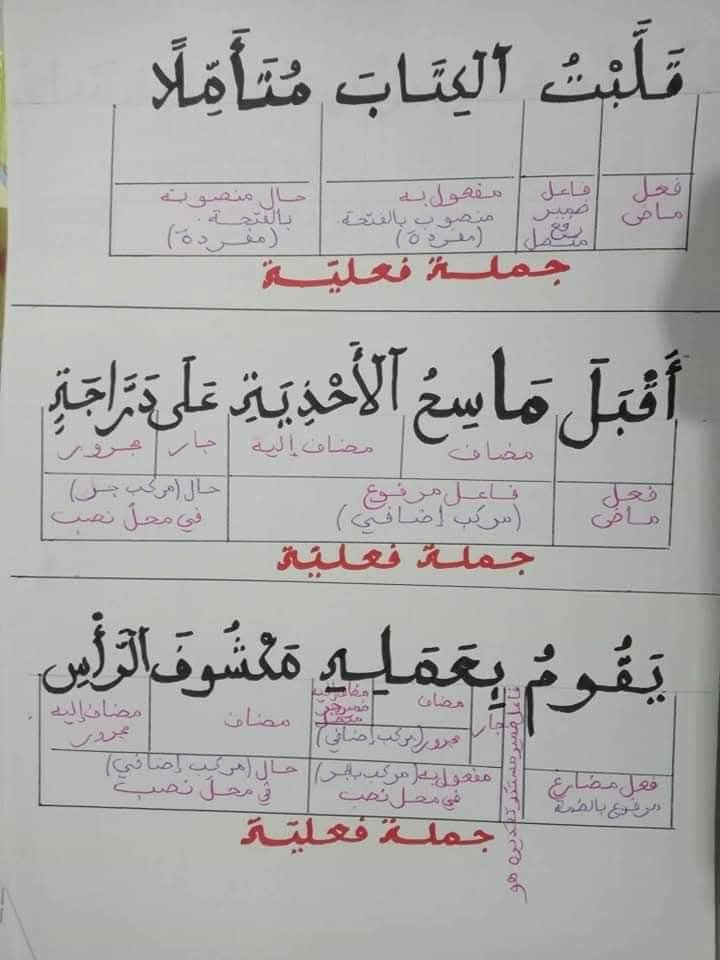 قَلَّبْتُ الْكِتَابَ مُتَأَمِّلًا
فعل ماض
فاعل ضمير رفع متصل
مفعول به منصوب بالفتحة (مفردة)
حال منصوبة بالفتحة (مفردة)
جملة فعليّة
أَقْبَلَ مَاسِحُ الْأَحْذِيَةِ عَلَى دَرَّاجَةٍ
مضاف مضاف إليه جار مجرور
فعل ماض
فاعل مرفوع (مركب إضافي)
حال (مركب جر) في محل نصب
جملة فعليّة
يَقُومُ بِعَمَلِهِ مَكْشُوفَ الرَّأْسِ
فاعل ضمير مستتر تقديره هو
جار
مضاف
مضاف إليه ضمير جر متصل
مضاف
مضاف إليه مجرور
مجرور (مركب إضافي)
فعل مضارع مرفوع بالضمة
مفعول به (مركب بالجر) في محل نصب
حال (مركب إضافي) في محل نصب
جملة فعليّة